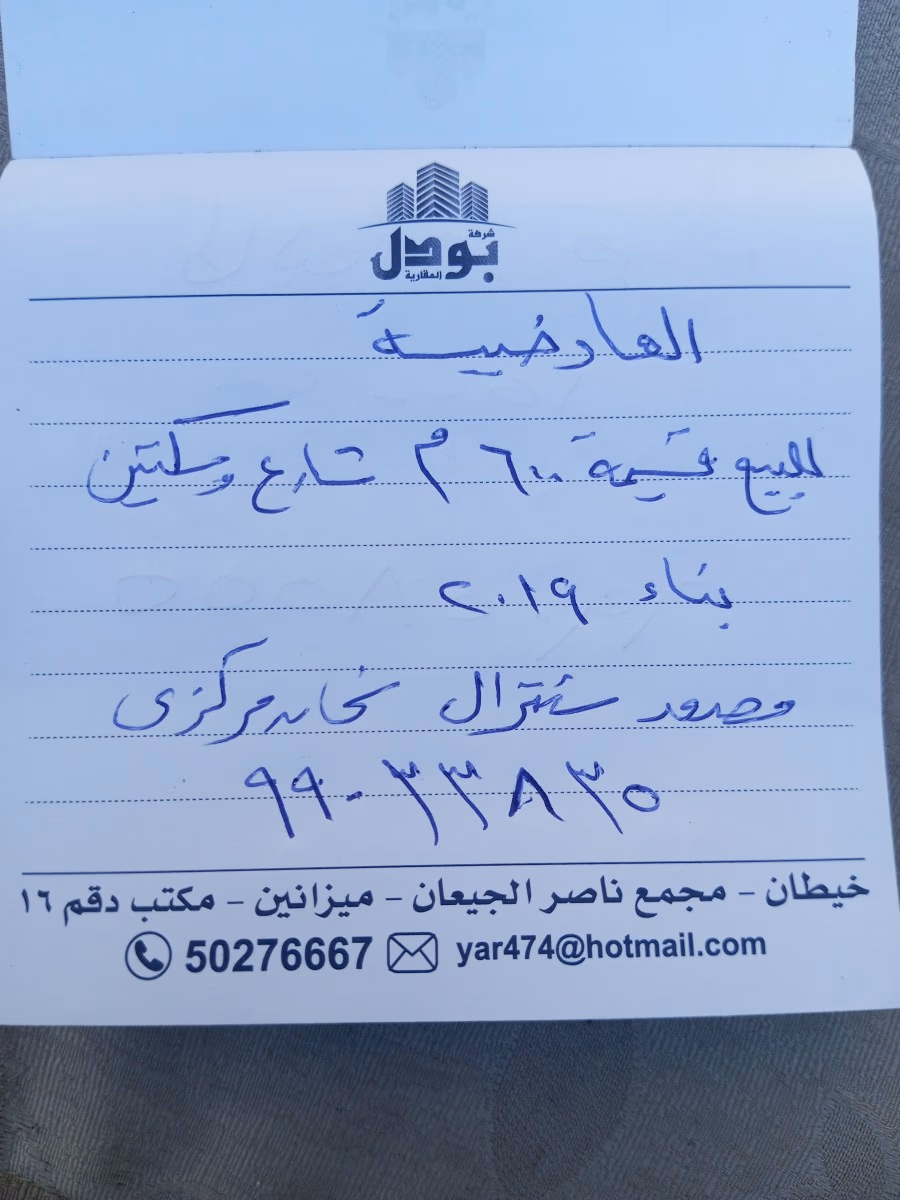 شركة
بودل
العقارية
العارضية
للبيع قسيمة ٦٠٠ م شارع وسكتين
بناء ٢٠١٩
مصعد سنترال نحاس مركزى
٩٩٠٣٣٨٣٥
خيطان - مجمع ناصر الجيعان - ميزانين - مكتب دقم ١٦
50276667 yar474@hotmail.com